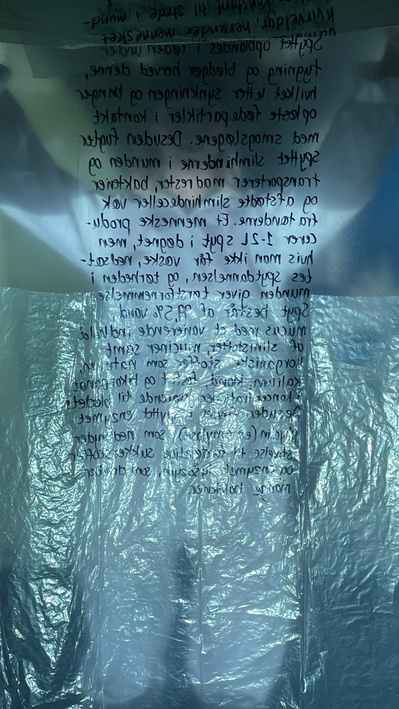 til stede i mund-
mennesket
Spyttet opblandes i føden under
tygning og blødgør herved denne,
hvilket letter synkningen og bringer
opløste fødepartikler i kontakt
med smagsløgene. Desuden fugter
spyttet slimhinderne i munden og
transporterer madrester, bakterier
og afstødte slimhindeceller væk
fra tænderne. Et menneske produ-
cerer 1-2L spyt i døgnet, men
hvis man ikke får væske, nedsæt-
tes spytdannelsen, og tørheden i
munden giver tørstfornemmelse
Spyt består af 99,5% vand,
mucus med et varierende indhold
af slimstoffer, muciner samt
uorganiske stoffer som natrium,
kalium, klorid, fosfat og bikarbonat
i koncentrationer svarende til blodets
Desuden findes i spyttet enzymet
som nedbryder
stivelse til forskellige sukkerstoffer
og enzymet lysozym, som dræber
mange bakterier